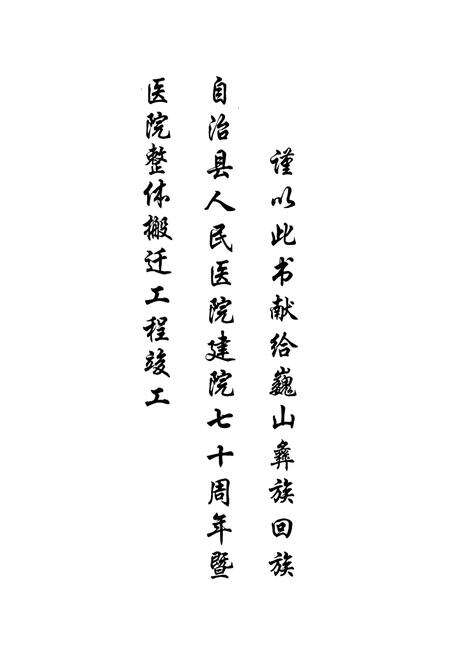 谨以此书献给巍山彝族回族
自治县人民医院建院七十周年暨
医院整体搬迁工程竣工